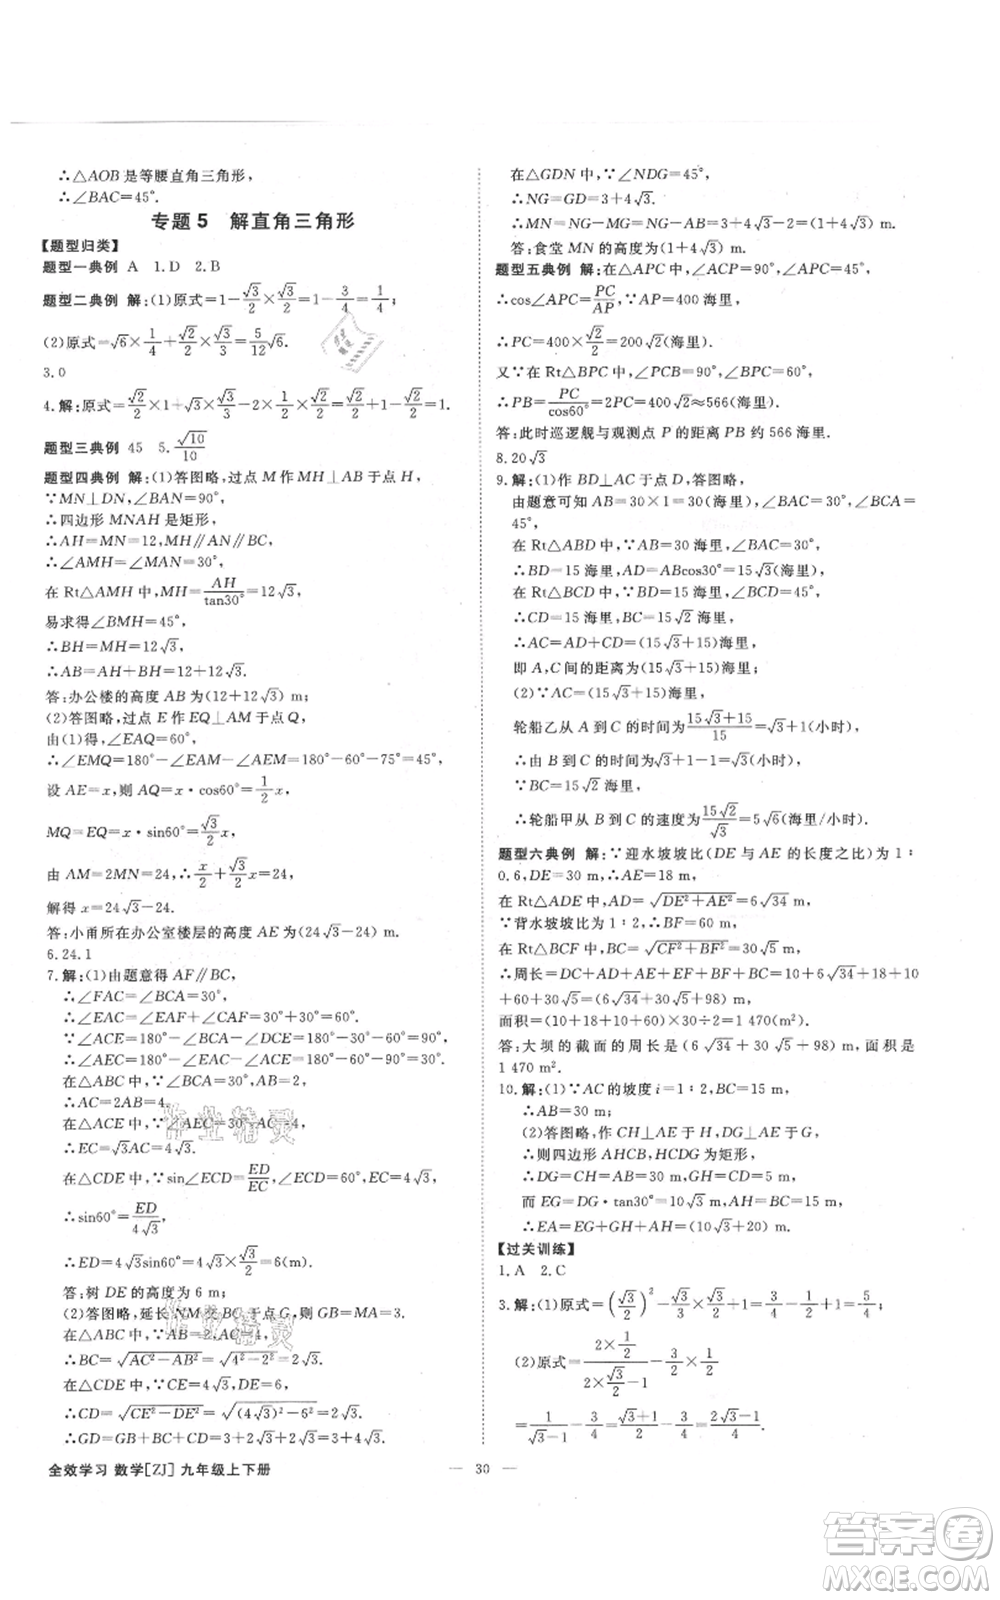 ∴△AOB是等腰直角三角形,
∴∠BAC=45°.
专题5 解直角三角形
【题型归类】
题型一典例 A 1.D 2.B
题型二典例 解:(1)原式=1-√3/2×√3/2=1-3/4=1/4;
(2)原式=√6×1/4+√2/2×√3/3=5/12√6.
3.0
4.解:原式=√2/2×1-√3×√3/3+√2/2×√3×√3/3=√2/2-1+√2/2=
题型三典例 45 5.√10/10
题型四典例 解:(1)答图略,过点M作MH⊥AB于点H,
∵MN⊥DN,∠BAN=90°,
∴四边形MNAH是矩形,
∴AH=MN=12,MH∥AN∥BC,
∴∠AMH=∠MAN=30°,
在Rt△AMH中,MH=AH/tan30°=12√3,
易求得∠BMH=45°,
∴BH=MH=12√3,
∴AB=AH+BH=12+12√3.
答:办公楼的高度AB为(12+12√3) m;
(2)答图略,过点E作EQ⊥AM于点Q,
由(1)得,∠EAQ=60°,
∴∠EMQ=180°-∠EAM-∠AEM=180°-60°-75°=45°,
设AE=x,则AQ=x·cos60°=1/2x,
MQ=EQ=x·sin60°=√3/2x,
由AM=2MN=24,∴x/2+√3/2x=24,
解得x=24√3-24.
答:小甬所在办公室楼层的高度AE为(24√3-24) m.
6.24.1
7.解:(1)由题意得AF∥BC,
∴∠FAC=∠BCA=30°,
∴∠EAC=∠EAF+∠CAF=30°+30°=60°.
∵∠ACE=180°-∠BCA-∠DCE=180°-30°-60°=90°,
∴∠AEC=180°-∠EAC-∠ACE=180°-60°-90°=30°.
在△ABC中,∵∠BCA=30°,AB=2,
∴AC=2AB=4,
在△ACE中,∵∠AEC=30°,AC=4,
∴EC=√3AC=4√3,
在△CDE中,∵sin∠ECD=ED/EC,∠ECD=60°,
∴sin60°=ED/4√3,
∴ED=4√3sin60°=4√3×√3/2=6(m).
答:树DE的高度为6 m;
(2)答图略,延长NM交BC于点G,则GB=MA=3.
在△ABC中,∵AB=2,AC=4,
∴BC=√(AC²-AB²)=√(4²-2²)=2√3.
在△CDE中,∵CE=4√3,DE=6,
∴CD=√(CE²-DE²)=√((4√3)²-6²)=2√3,
∴GD=GB+BC+CD=3+2√3+2√3=3+4√3.
全效学习 数学[ZJ] 九年级上下册
在△GDN中,∵∠NDG=45°,
∴NG=GD=3+4√3,
∴MN=NG-MG=NG-AB=3+4√3-2=(1+4√3)m.
答:食堂MN的高度为(1+4√3)m.
题型五典例 解:在△APC中,∠ACP=90°,∠APC=45°,
∴cos∠APC=PC/AP,∵AP=400海里,
∴PC=400×√2/2=200√2(海里).
又∵在Rt△BPC中,∠PCB=90°,∠BPC=60°,
∴PB=PC/cos60°=2PC=400√2≈566(海里).
答:此时巡逻舰与观测点P的距离PB约566海里.
8.20√3
9.解:(1)作BD⊥AC于点D,答图略,
由题意可知AB=30×1=30(海里),∠BAC=30°,∠BCA=
45°,
在Rt△ABD中,∵AB=30海里,∠BAC=30°,
∴BD=15海里,AD=ABcos30°=15√3海里,
在Rt△BCD中,∵BD=15海里,∠BCD=45°,
∴CD=15海里,BC=15√2海里,
∴AC=AD+CD=(15√3+15)海里,
即A,C间的距离为(15√3+15)海里;
(2)∵AC=(15√3+15)海里,
轮船乙从A到C的时间为(15√3+15)/15=√3+1(小时),
∴由B到C的时间为√3+1-1=√3(小时).
∵BC=15√2海里,
∴轮船甲从B到C的速度为15√2/√3=5√6(海里/小时).
题型六典例 解:∵迎水坡坡比(DE与AE的长度之比)为1∶
0.6,DE=30 m,∴AE=18 m,
在Rt△ADE中,AD=√(DE²+AE²)=6√34 m,
∵背水坡坡比为1∶2,∴BF=60 m,
在Rt△BCF中,BC=√(CF²+BF²)=30√5 m,
∴周长=DC+AD+AE+EF+BF+BC=10+6√34+18+10
+60+30√5=(6√34+30√5+98) m,
面积=(10+18+10+60)×30÷2=1 470(m²).
答:大坝的截面的周长是(6√34+30√5+98) m,面积是
1 470 m².
10.解:(1)∵AC的坡度i=1∶2,BC=15 m,
∴AB=30 m;
(2)答图略,作CH⊥AE于H,DG⊥AE于点G,
∴则四边形AHCB,HCDG为矩形,
∴DG=CH=AB=30 m,GH=CD=5 m,
而EG=DG·tan30°=10√3 m,AH=BC=15 m,
∴EA=EG+GH+AH=(10√3+20) m.
【过关训练】
1.A 2.C
3.解:(1)原式=(√3/2)²-√3/2×√3/2+1=3/4-1/4+1=5/4;
(2)原式=(2×1/2)/(2×√3/2-1)-√3/2×√3/2
=1/(√3-1)-3/4=(√3+1)/2-3/4=(2√3-1)/4.
— 30 —
作业精灵
作业精灵
答案卷
MXQE.COM